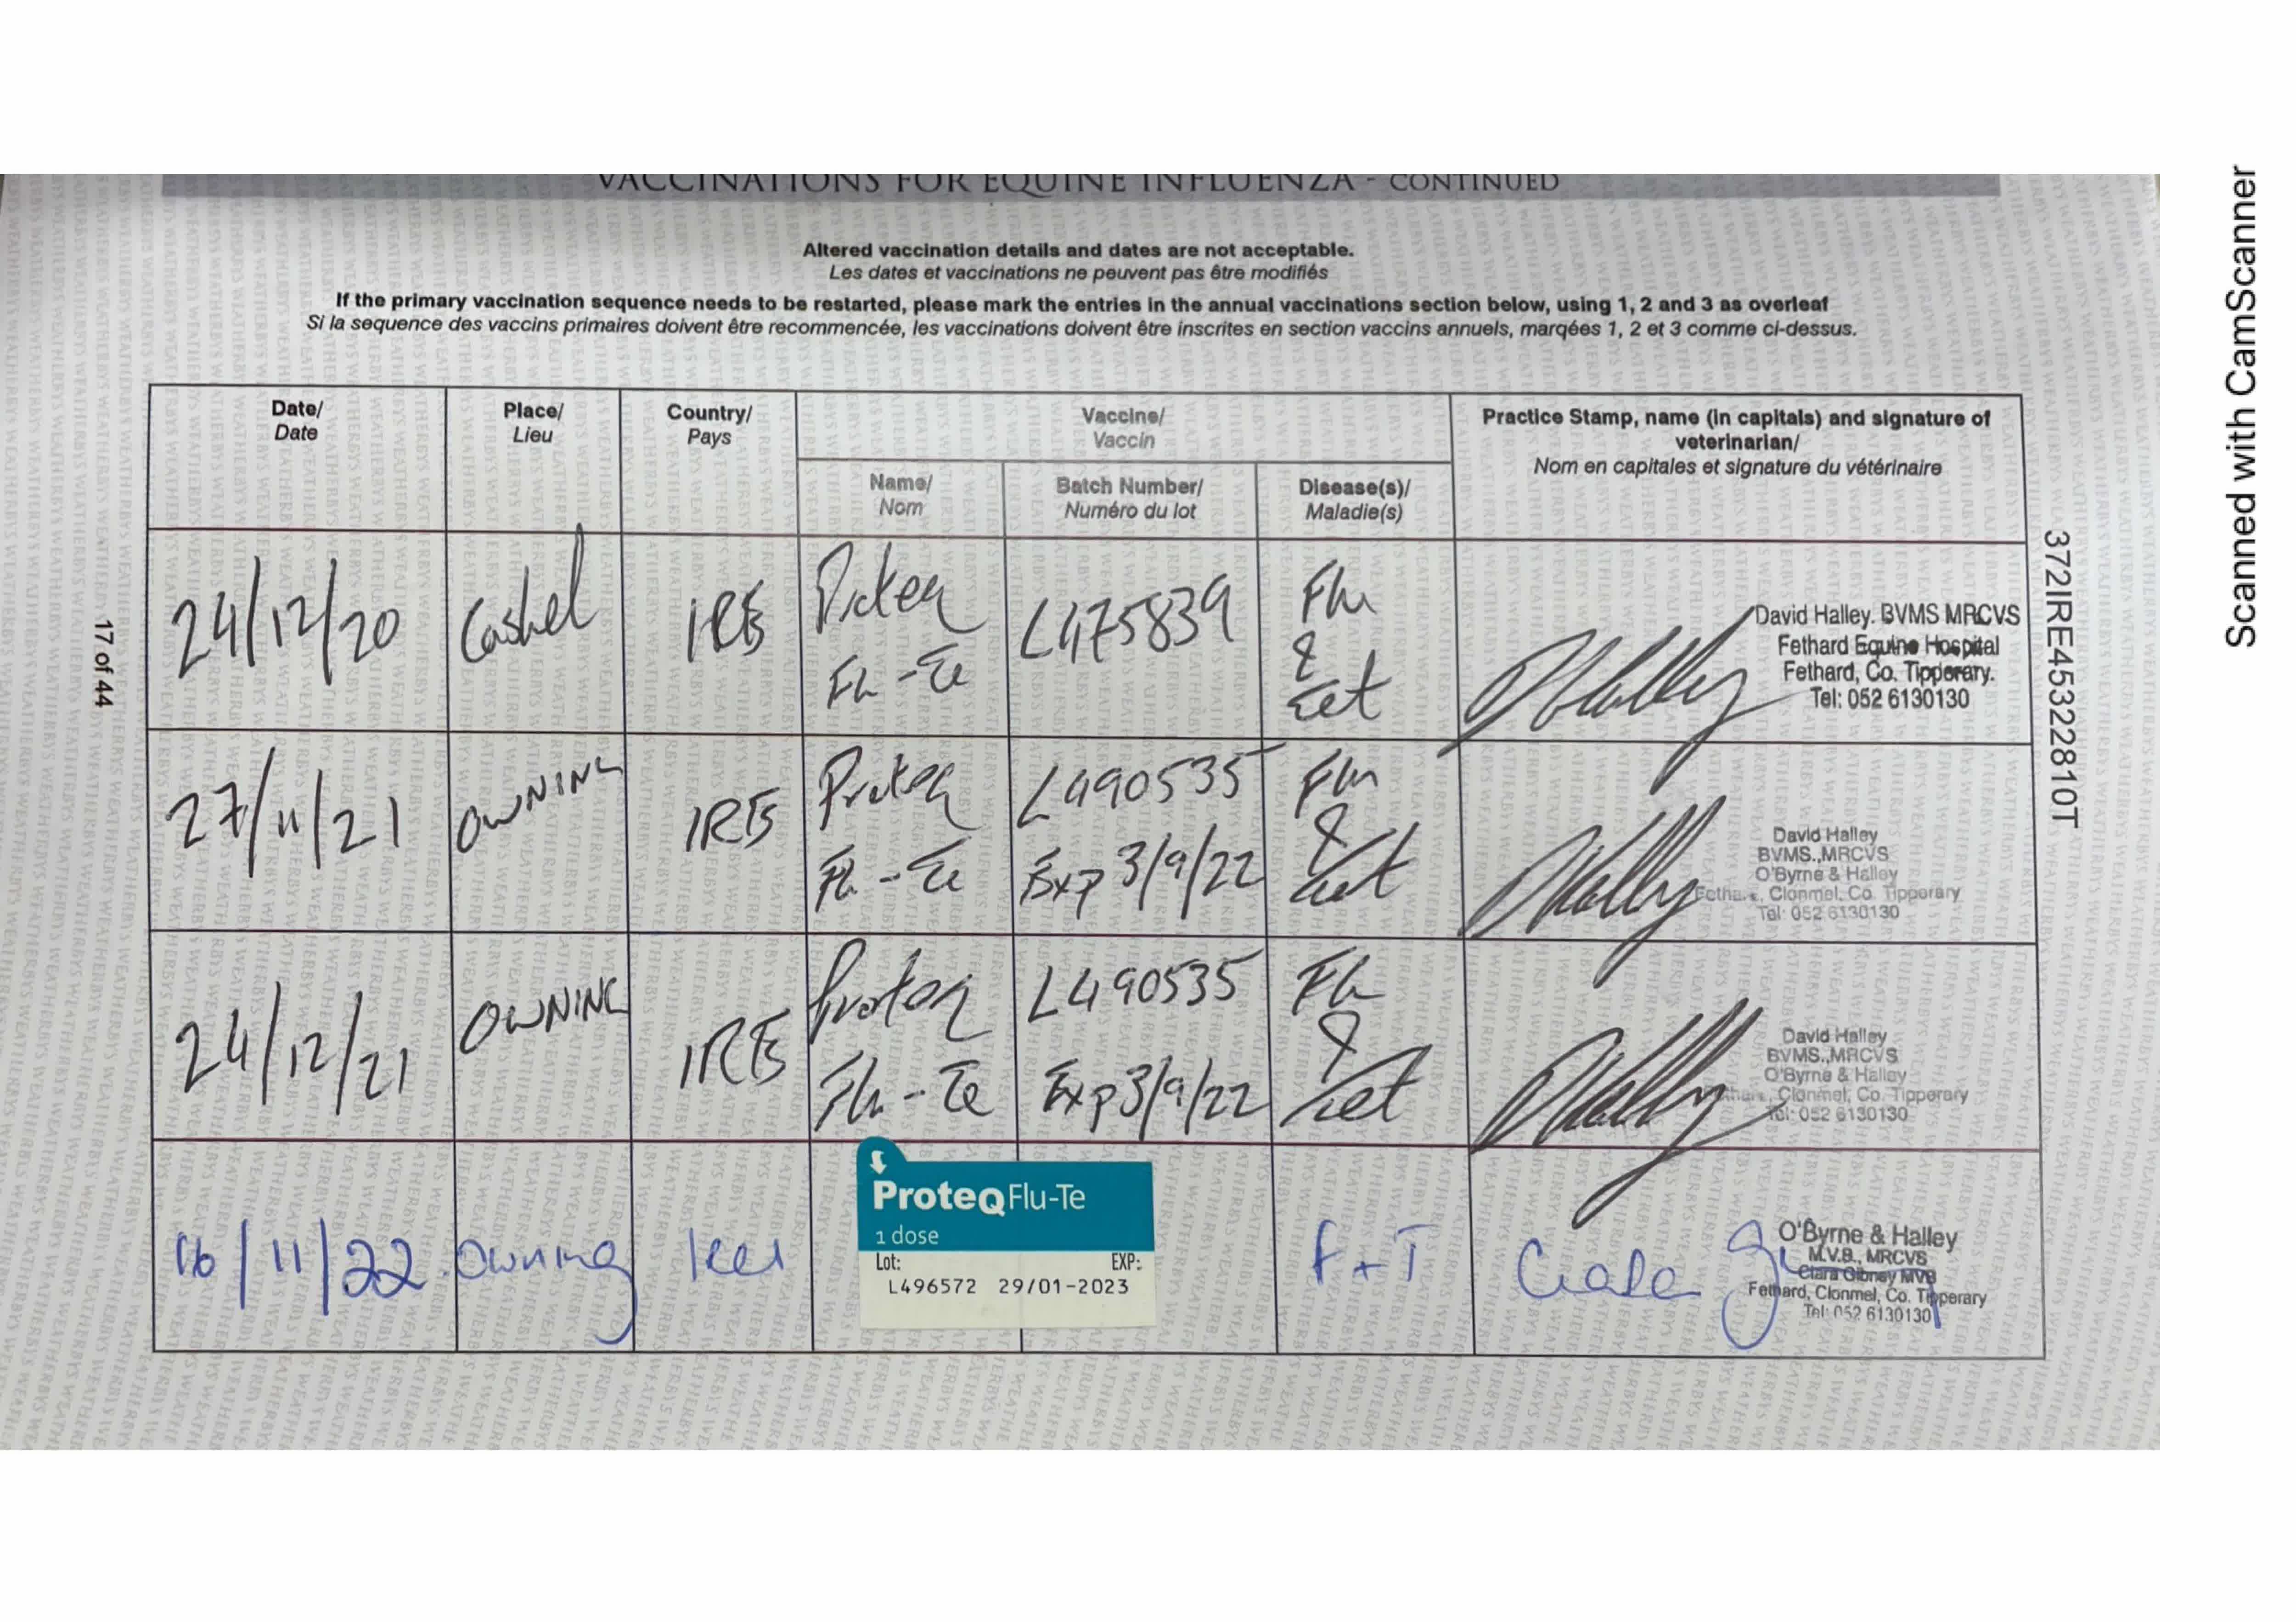 VACCINATIONS FOR EQUINE INFLUENZA - CONTINUED
Altered vaccination details and dates are not acceptable.
Les dates et vaccinations ne peuvent pas être modifiés
If the primary vaccination sequence needs to be restarted, please mark the entries in the annual vaccinations section below, using 1, 2 and 3 as overleaf
Si la sequence des vaccins primaires doivent être recommencée, les vaccinations doivent être inscrites en section vaccins annuels, marqées 1, 2 et 3 comme ci-dessus.
Date/
Date
Place/
Lieu
Country/
Pays
Vaccine/
Vaccin
Name/
Nom
Batch Number/
Numéro du lot
Disease(s)/
Maladie(s)
Practice Stamp, name (in capitals) and signature of
veterinarian/
Nom en capitales et signature du vétérinaire
24/12/20
Cashel
IRE
Proteq
Flu-Te
L475839
Flu
&
Tet
DHalley
David Halley. BVMS MRCVS
Fethard Equine Hospital
Fethard, Co. Tipperary.
Tel: 052 6130130
27/11/21
OWNING
IRE
Proteq
Flu-Te
L490535
Exp 3/9/22
Flu
&
Tet
DHalley
David Halley
BVMS.,MRCVS
O'Byrne & Halley
Fethard, Clonmel, Co. Tipperary
Tel: 052 6130130
24/12/21
OWNING
IRE
Proteq
Flu-Te
L490535
Exp 3/9/22
Flu
&
Tet
DHalley
David Halley
BVMS.,MRCVS
O'Byrne & Halley
Fethard, Clonmel, Co. Tipperary
Tel: 052 6130130
16/11/22
Owning
ProteqFlu-Te
1 dose
Lot:
EXP:
L496572 29/01-2023
F+T
Ciara
O'Byrne & Halley
M.V.B., MRCVS
Ciara Gibney MVB
Fethard, Clonmel, Co. Tipperary
Tel: 052 6130130
17 of 44
372IRE45322810T
Scanned with CamScanner